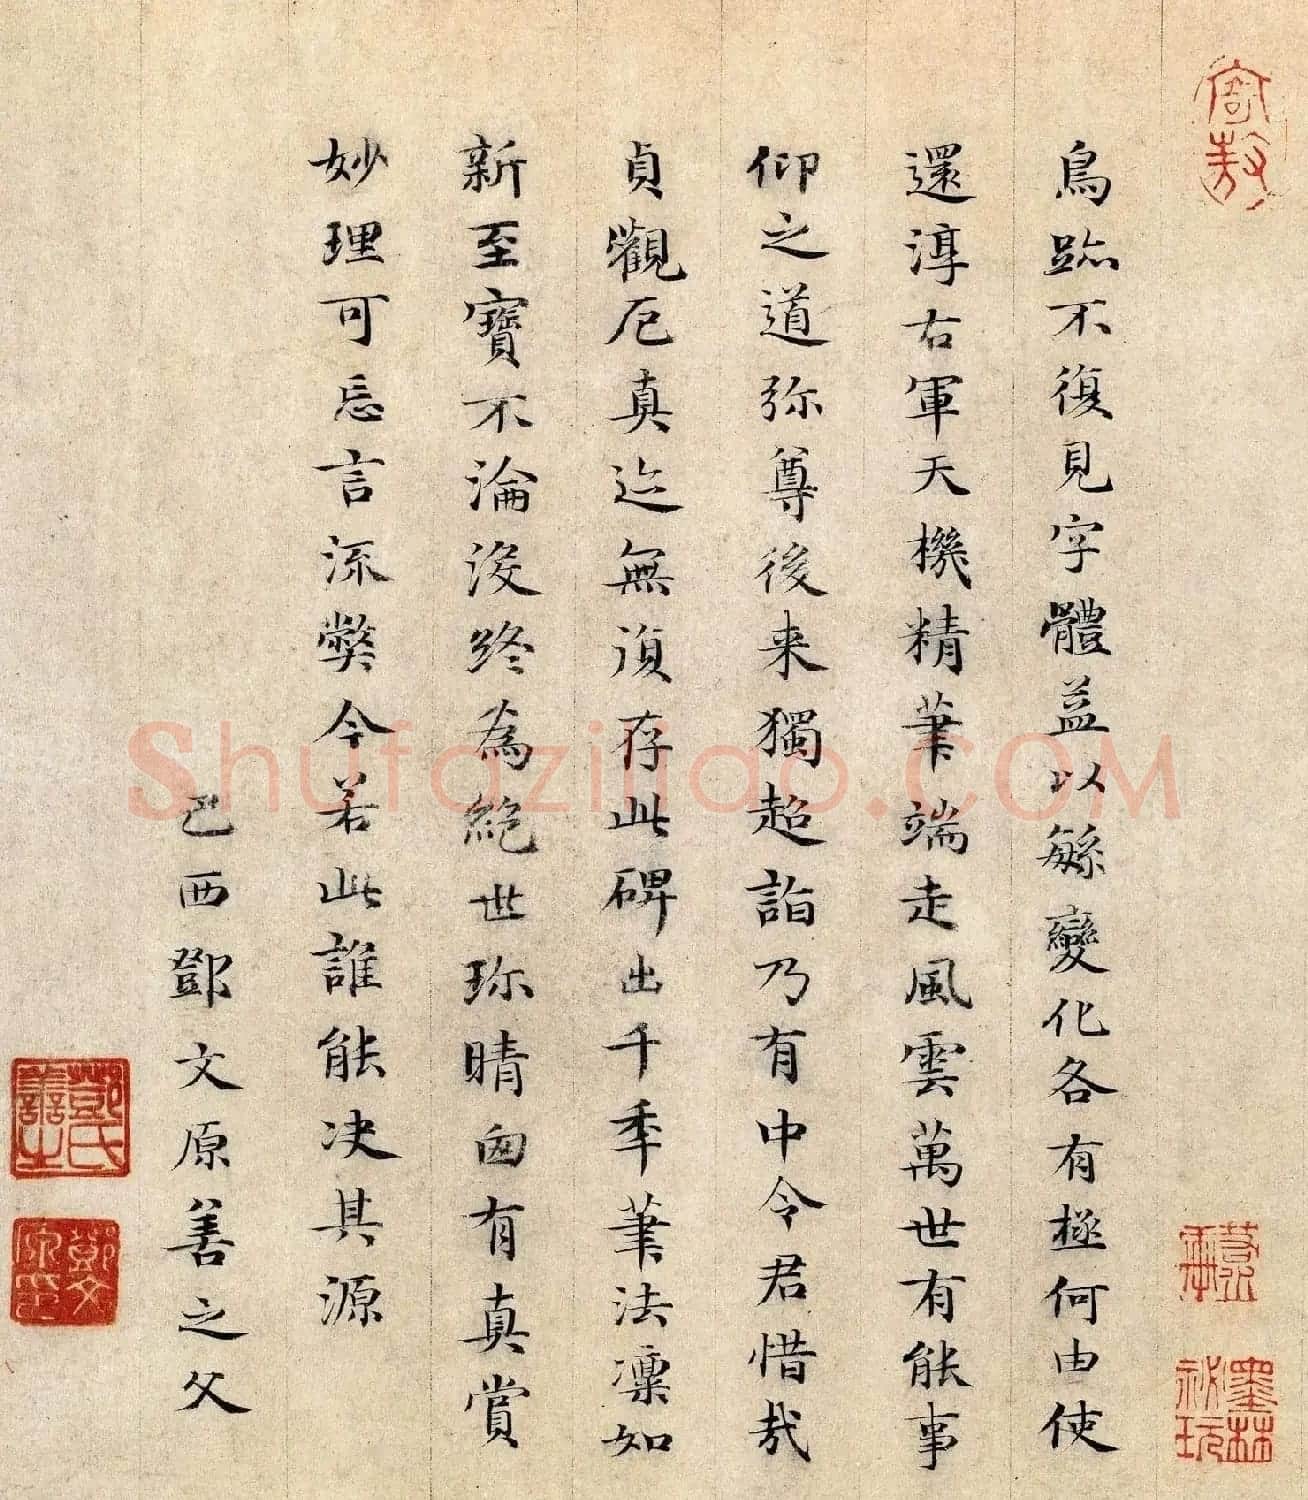 鳥跡不復見字體益以緐變化各有極何由使
還淳右軍天機精筆端走風雲萬世有能事
仰之道弥尊後来獨超詣乃有中令君惜哉
貞觀厄真迹無湏存此碑出千年筆法凛如
新至寶不淪没終為絶世珎晴囱有真賞
妙理可忘言流弊今若此誰能决其源
己酉鄧文原善之父
鄧氏善之
鄧文原印
墨林祕玩
Shufaziliao.COM